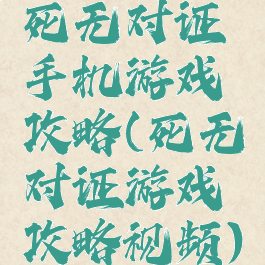 死无对证
手机游戏
攻略(死无
对证游戏
攻略视频)